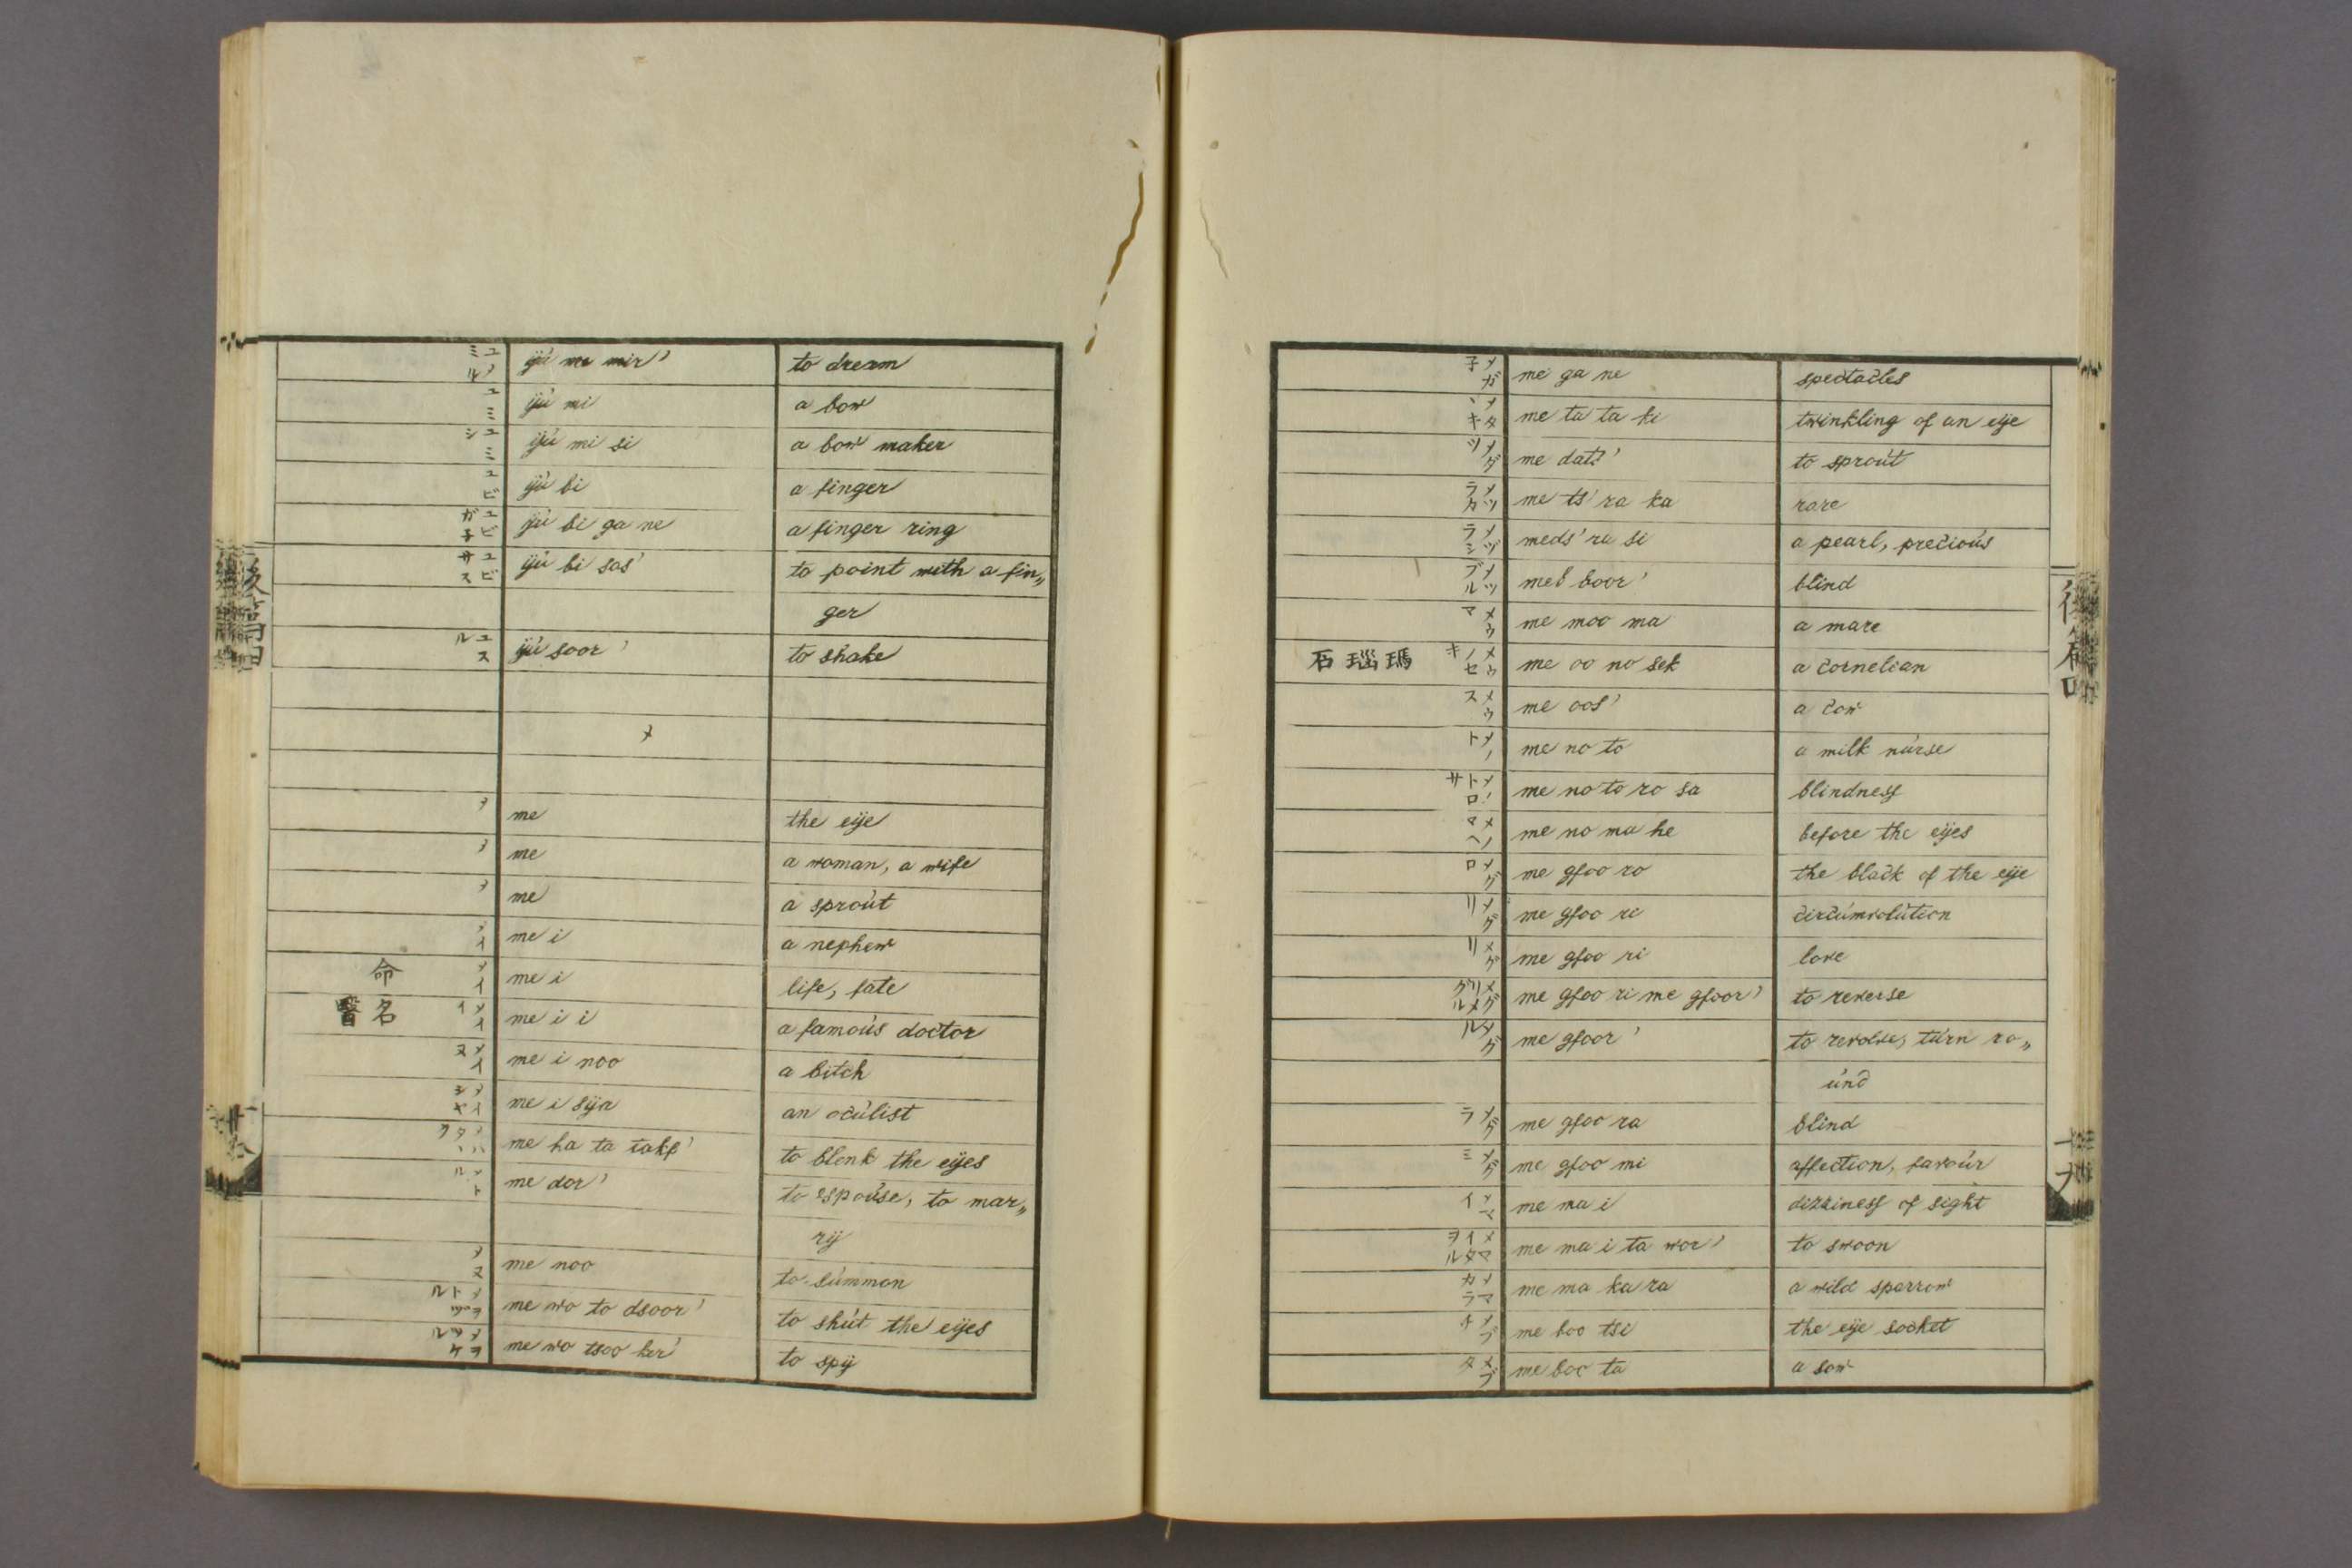 ユメ ミル ijú me mir' to dream
ユミ ijú mi a bow
ユミシ ijú mi si a bow maker
ユビ ijú bi a finger
ユビガ子 ijú bi ga ne a finger ring
ユビサス ijú bi sas' to point with a fin„
ger
ユスル ijú soor' to shake
メ
メ me the eije
メ me a woman, a wife
メ me a sproút
メイ me i a nephew
命 メイ me i life, fate
醫名 メイイ me i i a famoús doctor
メイヌ me i noo a bitch
メイシヤ me i sija an ocúlist
メハタヽク me ha ta tak' to blenk the eijes
メトル me dor' to espoúse, to mar„
rij
メヌ me noo to súmmon
メヲトヅル me wo to dsoor' to shút the eijes
メヲツケル me wo tsoo ker' to spij
メガ子 me ga ne spectacles
メタヽキ me ta ta ki twinkling of an eije
メダツ me dats' to sproút
メツラカ me ts' ra ka rare
メヅラシ meds' ra si a pearl, precioús
メツブル boor' blind
メウマ me moo ma a mare
石瑙瑪 メウノセキ me oo no sek a cornelian
メウス me oos' a cow
メノト me no to a milk núrse
メノトロサ me no to ro sa blindness
メノマヘ me no ma he before the eijes
メグロ me gfoo ro the black of the eije
メグリ me gfoo ri circúmvolútion
メグリ me gfoo ri love
メグリメグル me gfoo ri me gfoor' to reverse
メグル me gfoor' to revolve, túrn ro„
únd
メグラ me gfoo ra blind
メグミ me gfoo mi affection, favoúr
メマイ me ma i dizziness of sight
メマイタヲル me ma i ta wor' to swoon
メマカラ me ma ka ra a wild sparrow
メブチ me boo tsi the eije socket
メブタ me boo ta a sow